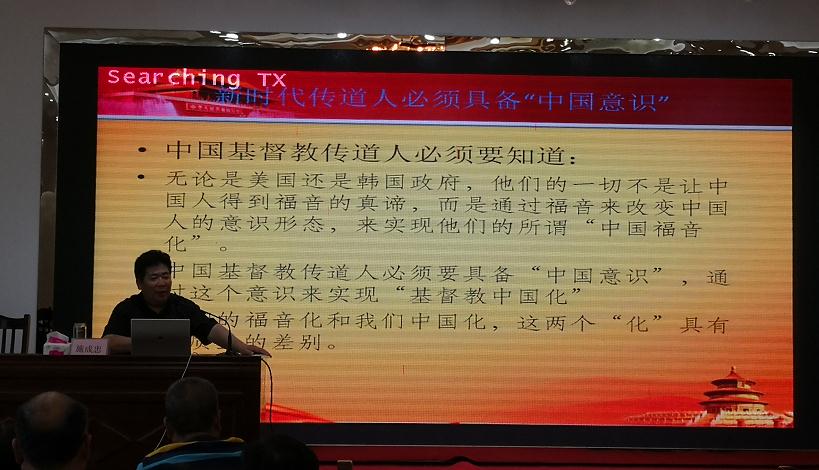 Searching TX
新时代传道人必须具备“中国意识”
• 中国基督教传道人必须要知道：
• 无论是美国还是韩国政府，他们的一切不是让中
国人得到福音的真谛，而是通过福音来改变中国
人的意识形态，来实现他们的所谓“中国福音
化”。
中国基督教传道人必须要具备“中国意识”，通
这个意识来实现“基督教中国化”
的福音化和我们中国化，这两个“化”具有
的差别。
施成忠